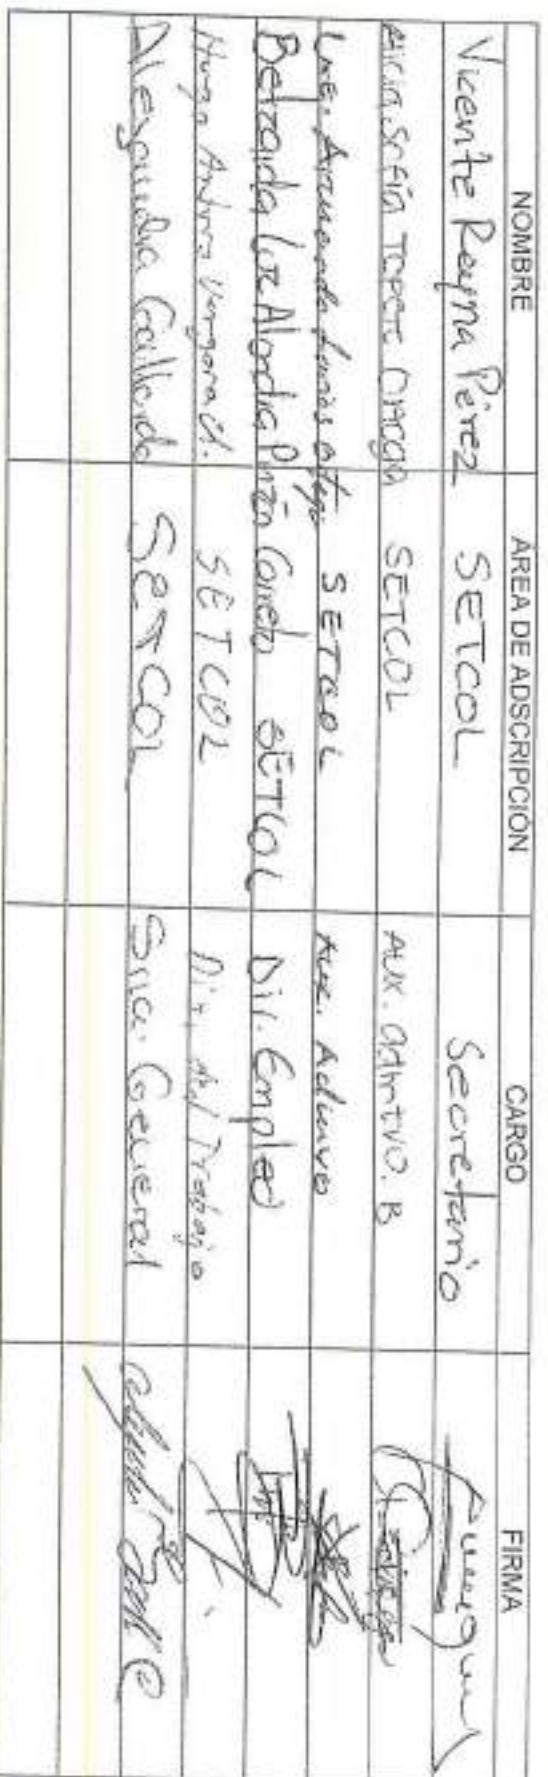 NOMBRE ÁREA DE ADSCRIPCIÓN CARGO FIRMA
Vicente Reyna Pérez SETCOL Secretario
Sofía Topete SETCOL Aux. admtvo. B
Armando SETCOL Aux. Admvo
Betzaida Luz Alondra Pinzón SETCOL Dir. Empleo
Hugo Andres Vergara SETCOL Dir. del Trabajo
Alejandra Gallardo SETCOL Sria. General